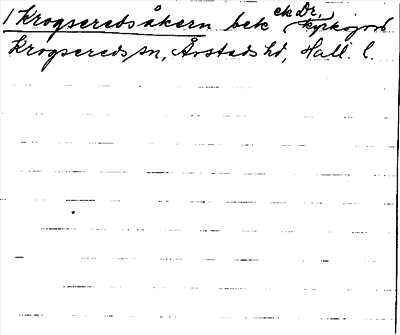 1 Krogseredsåkern bek ek Dr, Kyrkojord
Krogsereds sn, Årstads hd, Hall. l.